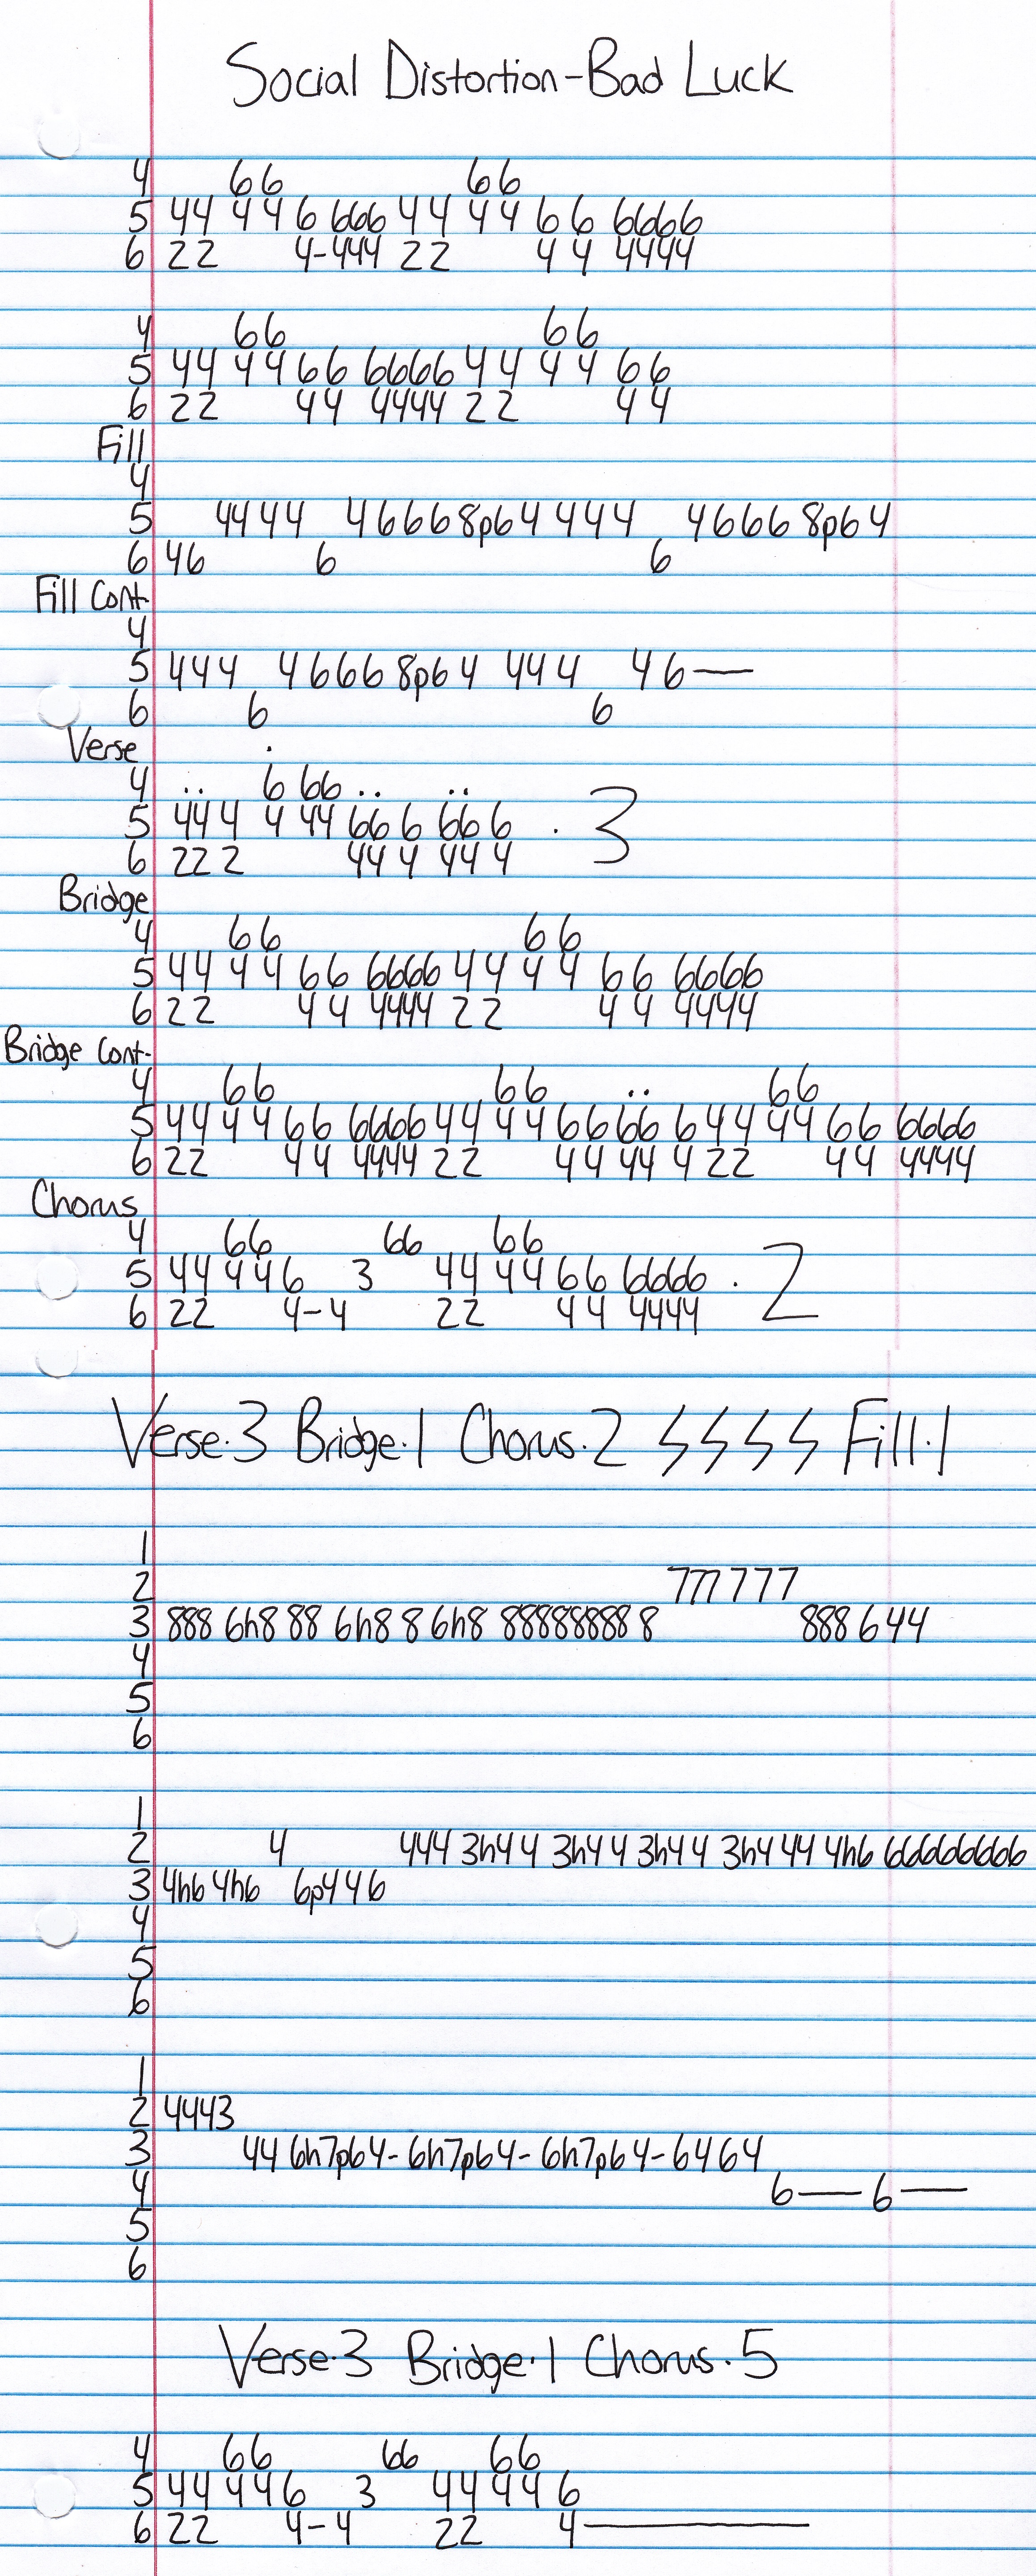 Social Distortion-Bad Luck
4 66 66
5 44 44 6 666 44 44 6 6 6666
6 22 4-444 22 4 4 4444
4 66 66
5 44 44 66 6666 44 44 66
6 22 44 4444 22 44
Fill
4
5 4444 46668p64 444 46668p64
6 46 6 6
Fill Cont.
4
5 444 46668p64 444 46—
6 6 6
Verse
4 .. 6 66 .. ..
5 444 4 44 66 6 66 6 . 3
6 22 2 44 4 44 4
Bridge
4 66 66
5 44 44 66 6666 44 44 66 6666
6 22 44 4444 22 44 4444
Bridge Cont.
4 66 66 .. 66
5 44 44 66 6666 44 44 66 66 6 44 44 66 6666
6 22 44 4444 22 44 44 4 22 44 4444
Chorus
4 66 66 66
5 44 446 3 44 44 66 6666 . 2
6 22 4-4 22 44 4444
Verse.3 Bridge.1 Chorus.2 Fill.1
1
2 777 777
3 888 6h8 88 6h8 8 6h8 888888888 8 888 644
4
5
6
1
2 4 444 3h44 3h44 3h44 3h444 44 4h6 66666666
3 4h6 4h6 6p446
4
5
6
1
2 4443
3 44 6h7p64-6h7p64-6h7p64-6464
4 6— 6—
5
6
Verse.3 Bridge.1 Chorus.5
4 66 66 66
5 44 446 3 44 446
6 22 4-4 22 4—